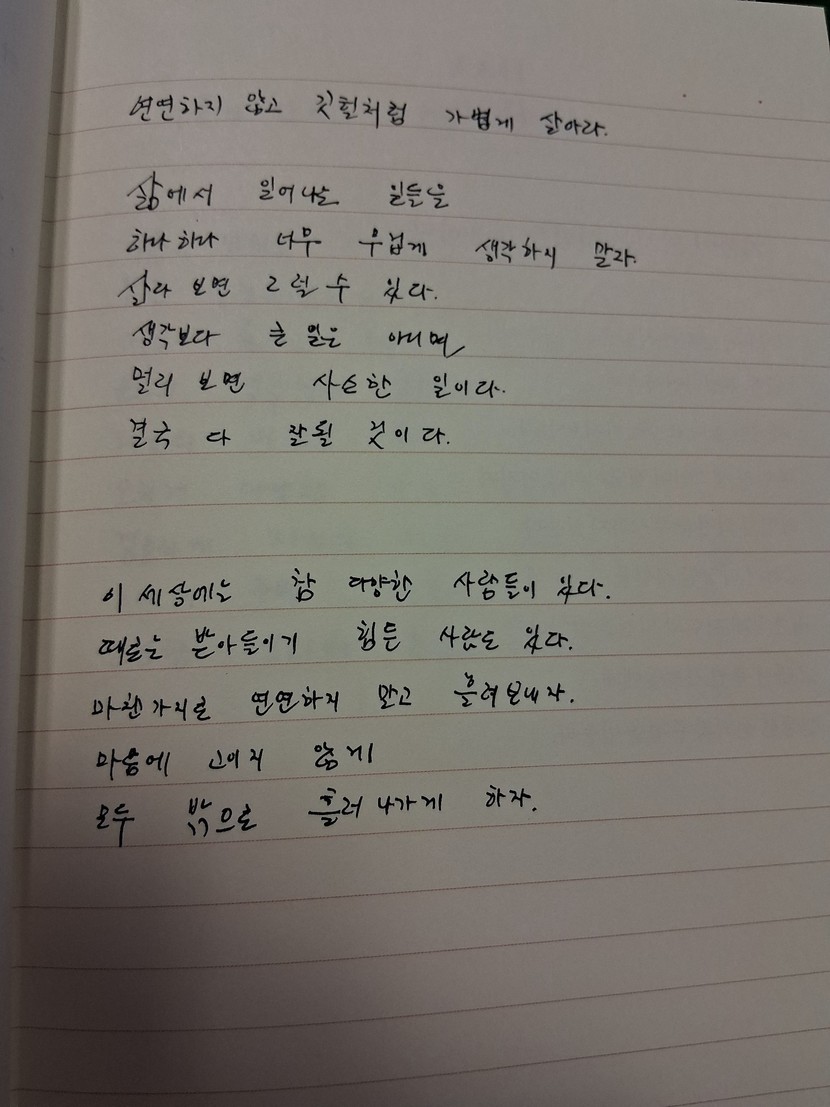 연연하지 않고 깃털처럼 가볍게 살아라.
삶에서 일어나는 일들을
하나하나 너무 무겁게 생각하지 말자.
살다 보면 그럴 수 있다.
생각보다 큰 일은 아니며
멀리 보면 사소한 일이다.
결국 다 잘될 것이다.
이 세상에는 참 다양한 사람들이 있다.
때로는 받아들이기 힘든 사람도 있다.
마찬가지로 연연하지 말고 흘려보내자.
마음에 고이지 않게
모두 밖으로 흘러나가게 하자.